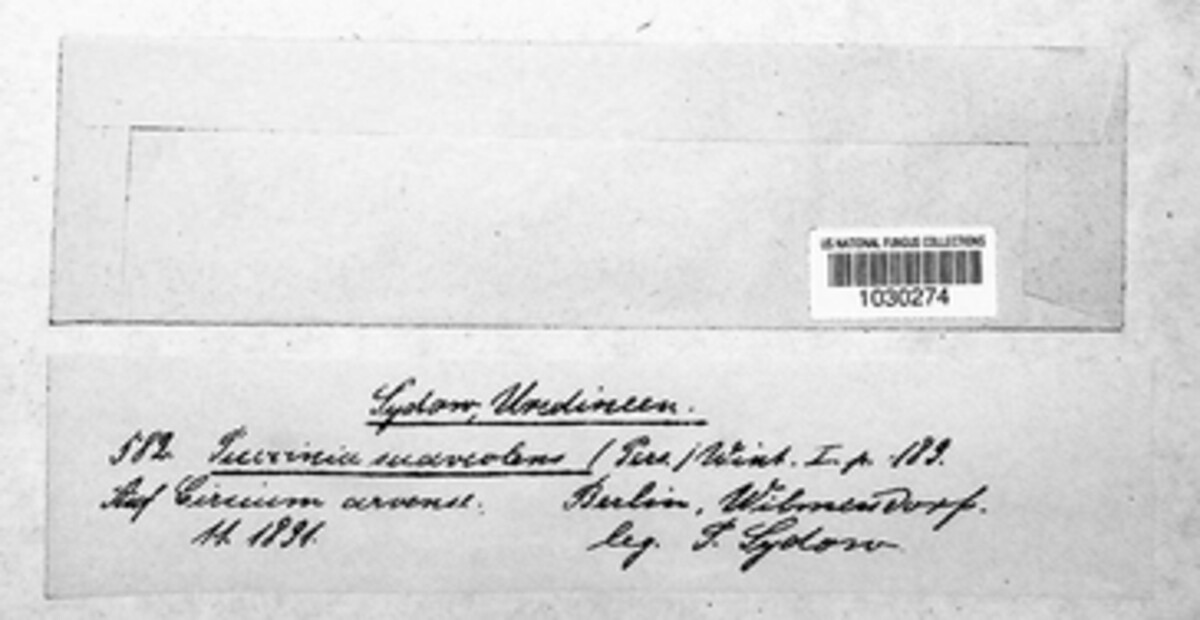 US NATIONAL FUNGUS COLLECTIONS
1030274
Sydow, Uredineen.
582. Puccinia suaveolens (Pers.) Wint. I. p. 189.
Auf Cirsium arvense. Berlin, Wilmersdorf.
1891. leg. P. Sydow